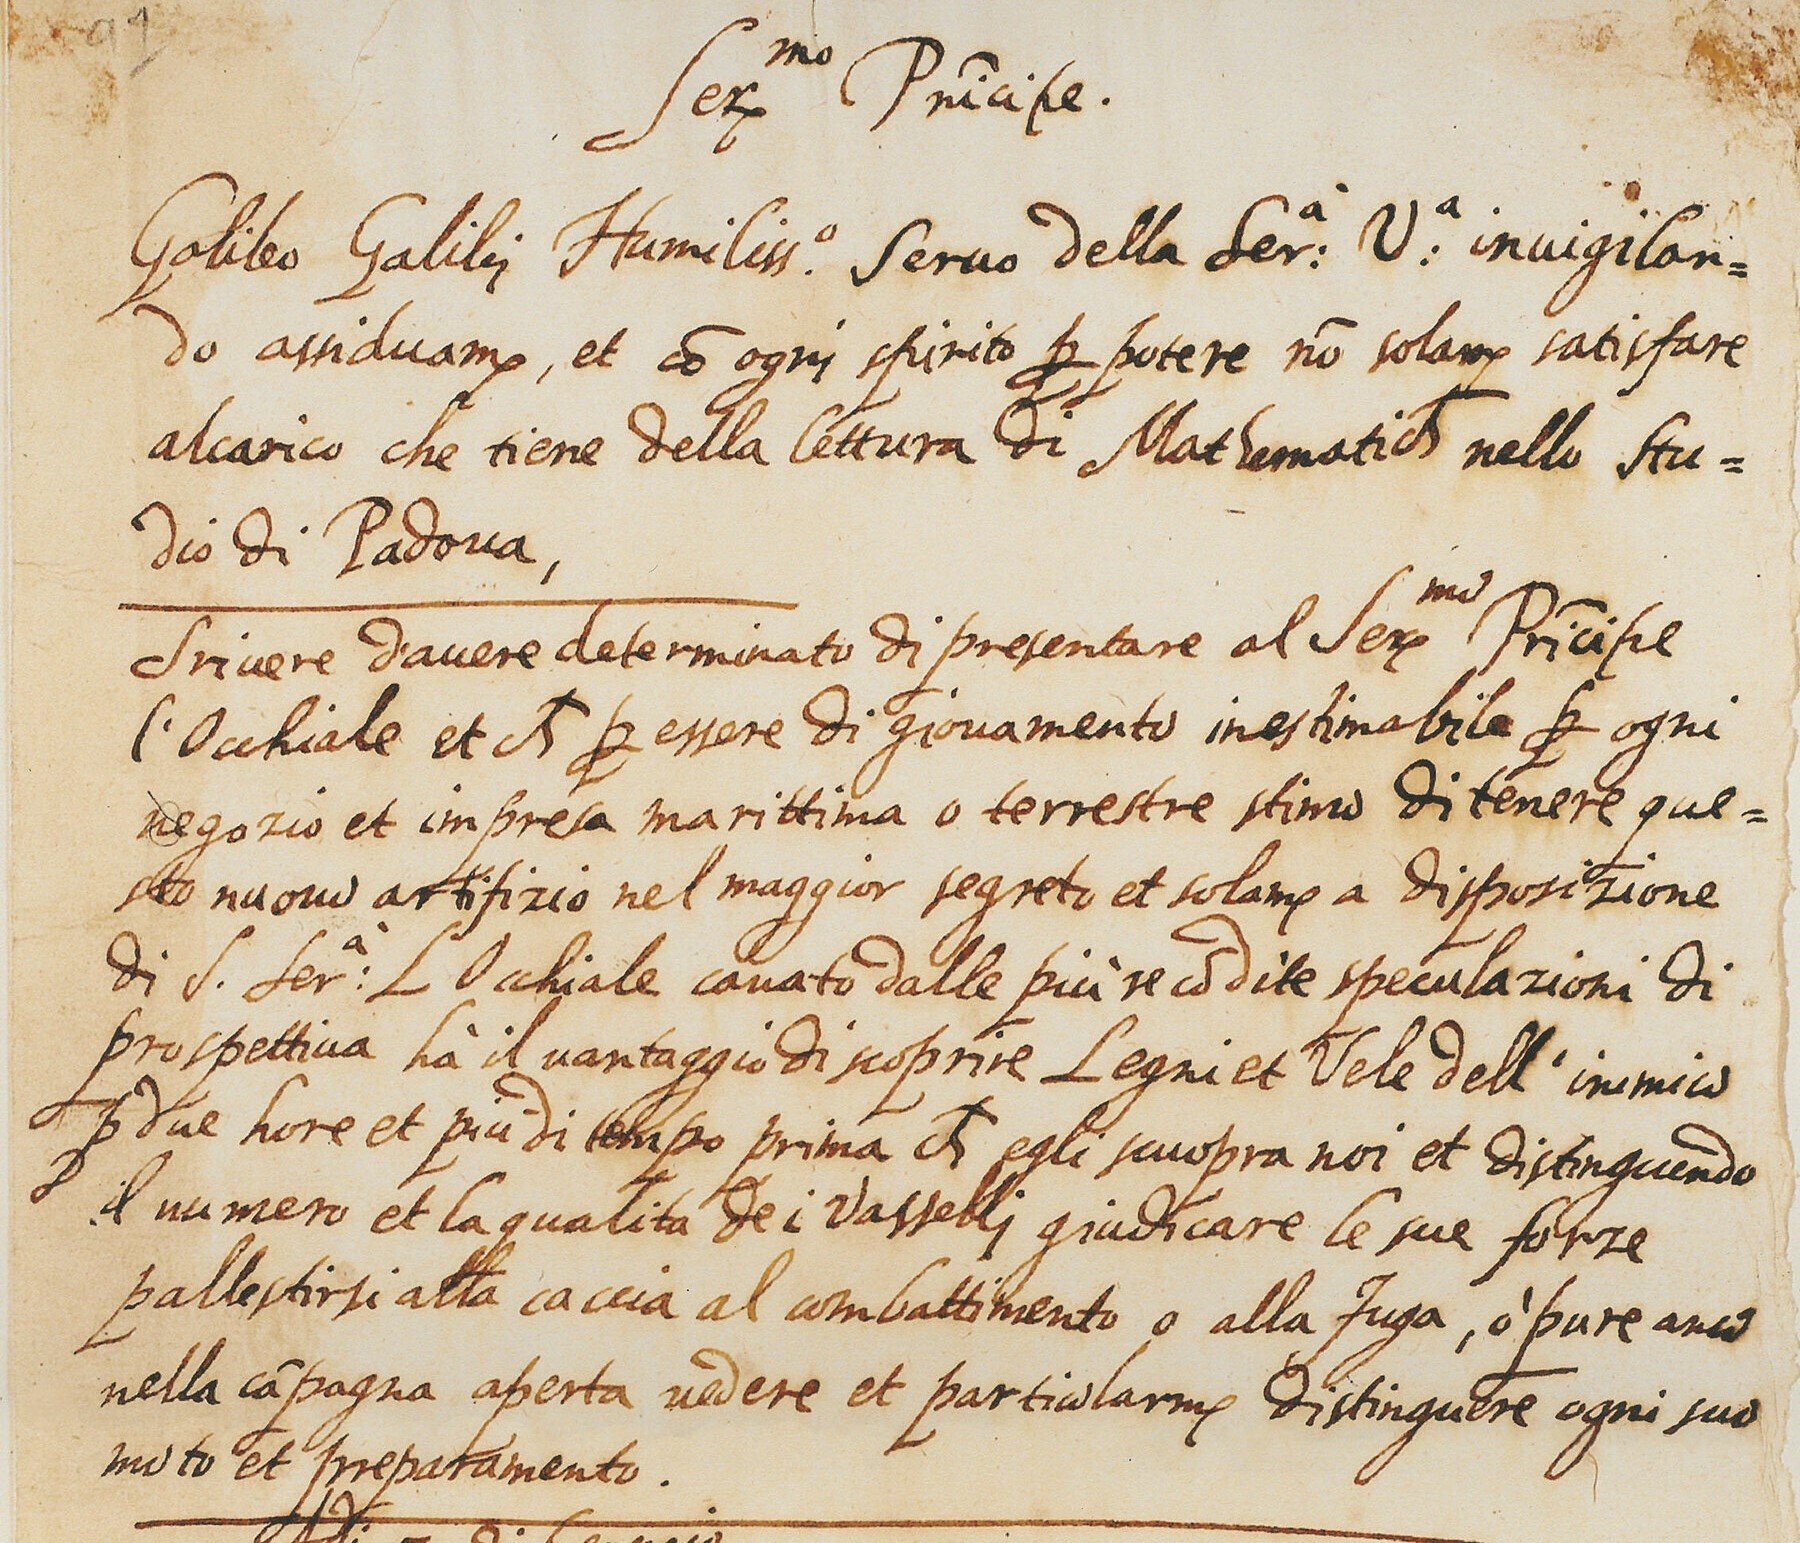 91
Ser.mo Prīcipe.
Galileo Galilej Humiliss.o Seruo della Ser:à V:a inuigilan=
do assiduam.e, et cō ogni spirito p̱ potere nō solam.e satisfare
alcarico che tiene della lettura di Mathematich nello Stu=
dio di Padoua,
Sriuere d'auere determinato di presentare al Ser.mo Prīcipe
l'Occhiale et ch p̱ essere di giouamento inestimabile p̱ ogni
negozio et impresa marittima o terrestre stimo di tenere que=
sto nuouo artifizio nel maggior segreto et solam.e a disposizione
di S. Ser:à L Occhiale cauato dalle più recōdite speculazioni di
prospettiua hà il uantaggio di scoprire Legni et Vele dell' inimico
p̱ due hore et più di tempo prima ch egli scuopra noi et distinguendo
il numero et la qualita dei Vasselli giudicare le sue forze
pallestirsi alla caccia al combattimento o alla fuga, ò pure anco
nella cāpagna aperta uedere et particolarm.e distinguere ogni suo
moto et preparamento.